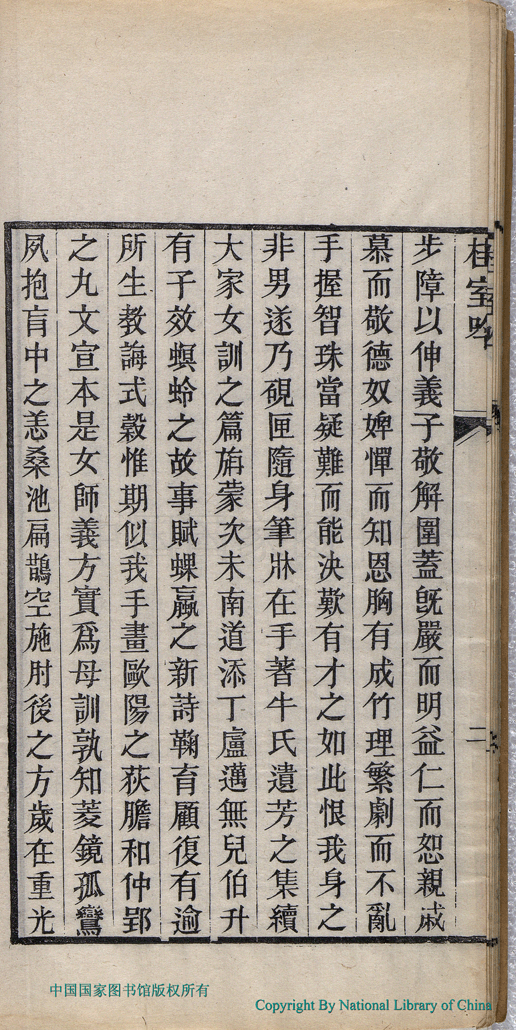 桂室吟
二
步障以伸義子敬解圍蓋旣嚴而明益仁而恕親戚
慕而敬德奴婢憚而知恩胸有成竹理繁劇而不亂
手握智珠當疑難而能決歎有才之如此恨我身之
非男遂乃硯匣隨身筆牀在手著牛氏遺芳之集續
大家女訓之篇旃蒙次未南道添丁盧邁無兒伯升
有子效螟蛉之故事賦蜾蠃之新詩鞠育顧復有逾
所生教誨式穀惟期似我手畫歐陽之荻膽和仲郢
之丸文宣本是女師義方實爲母訓孰知菱鏡孤鸞
夙抱肓中之恙桑池扁鵲空施肘後之方歲在重光
中国国家图书馆版权所有
Copyright By National Library of China